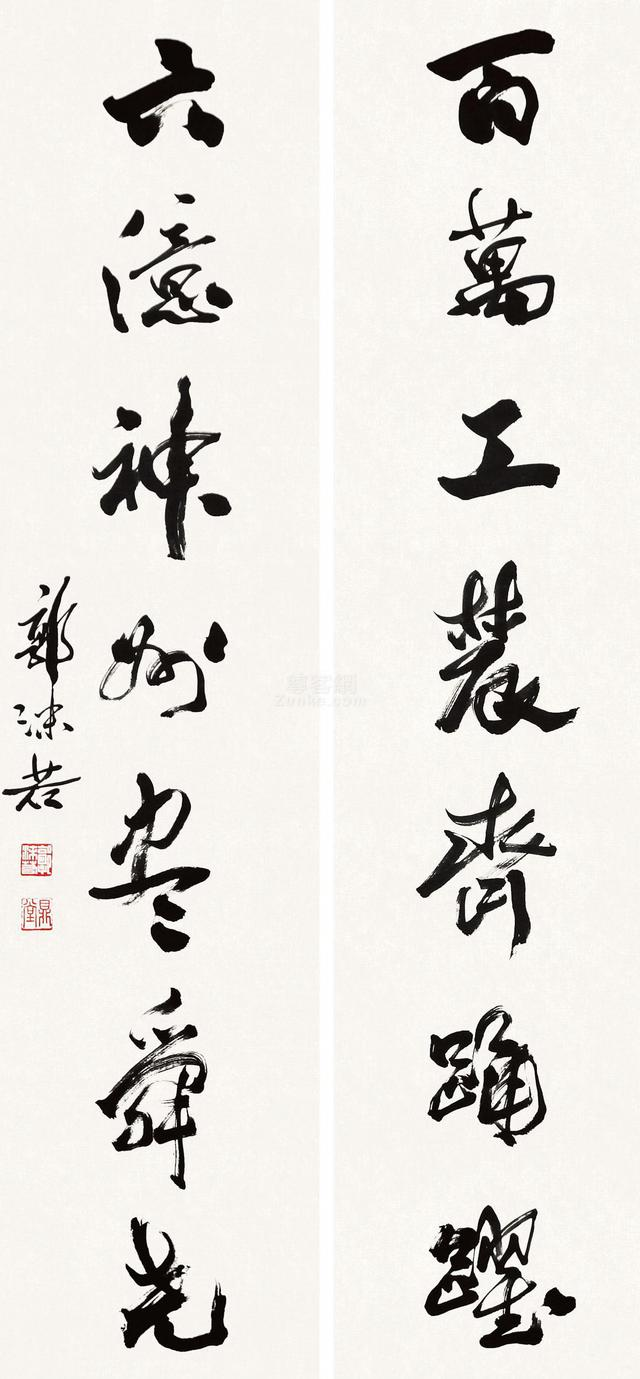 百萬工農齊踊躍
六億神州尽舜堯
郭沫若
鼎堂
尊客網
Zunke.com